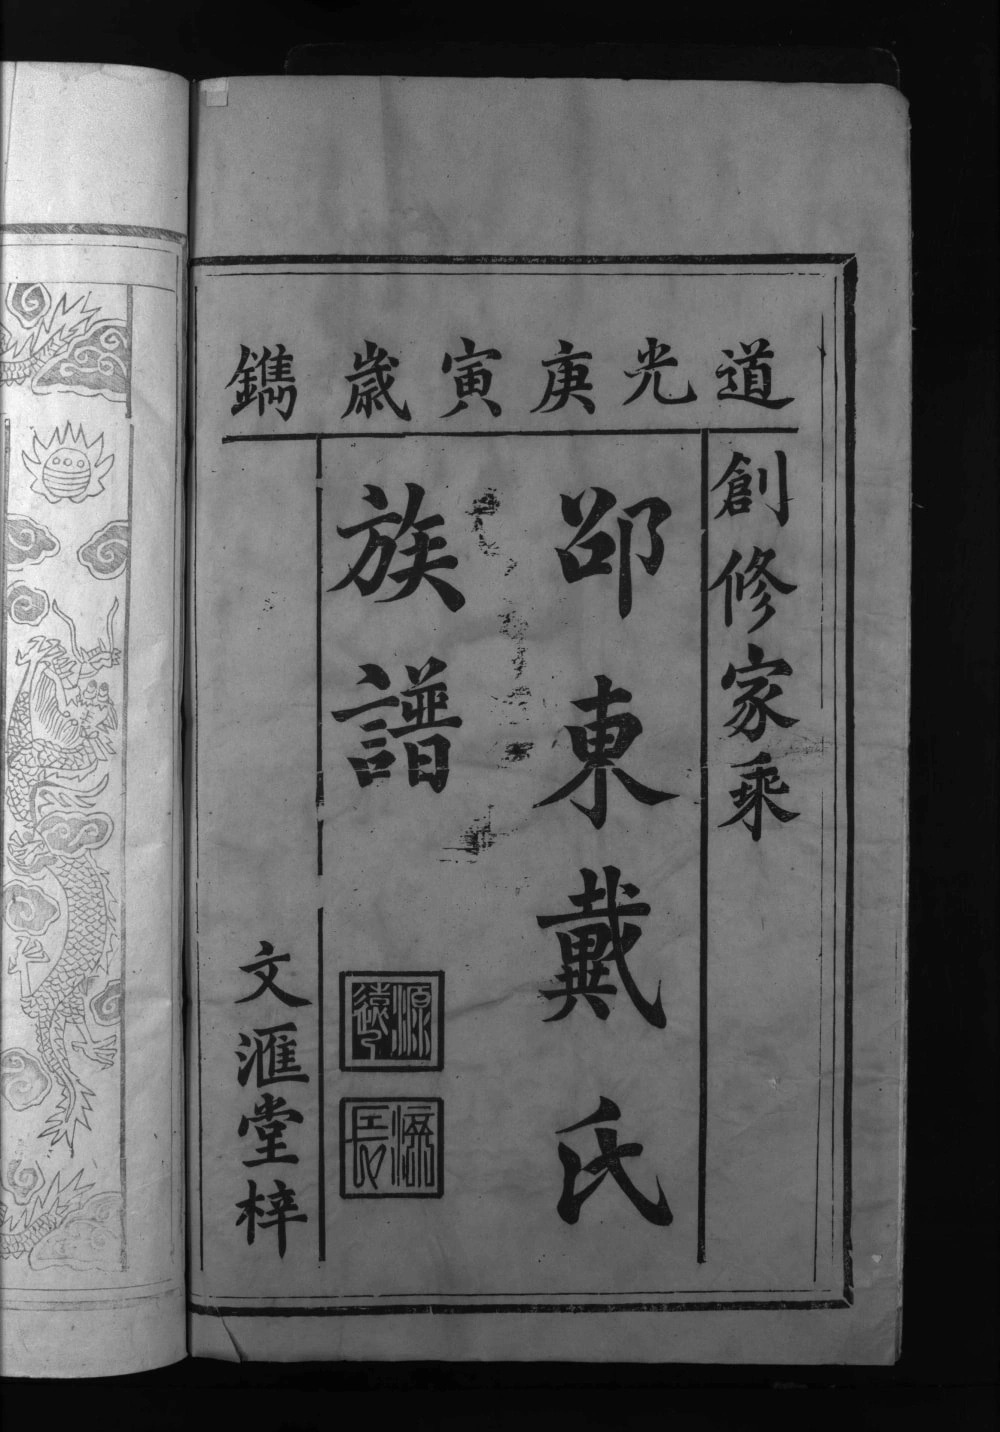 道光庚寅歲鐫
創修家乘
邵東戴氏
族譜
源遠
流長
文滙堂梓